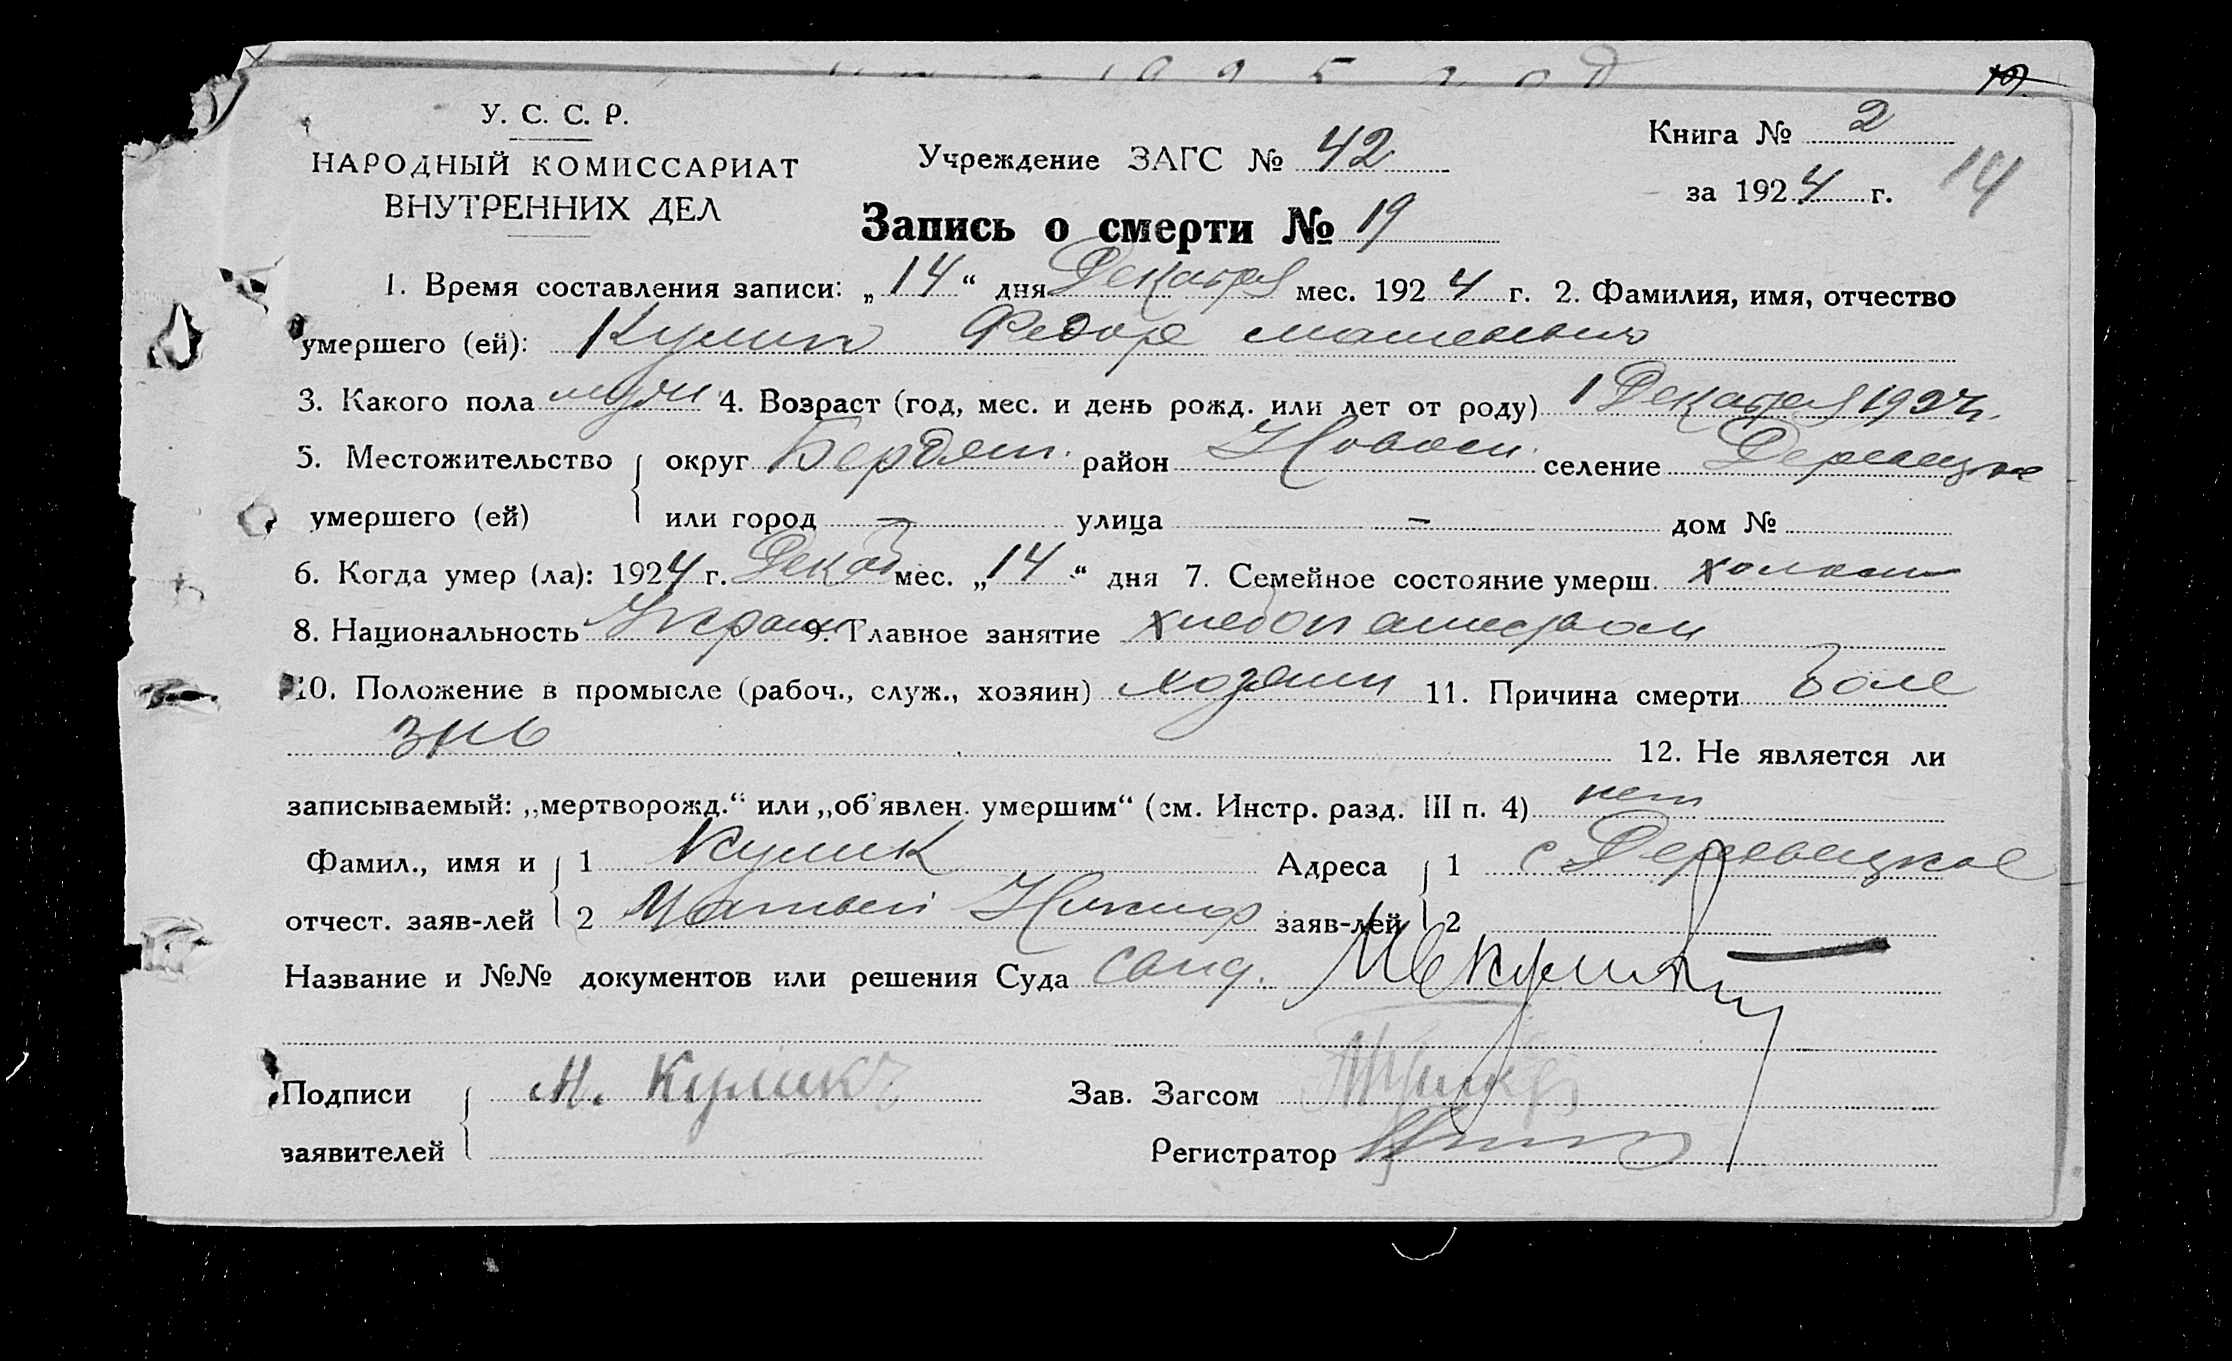 У. С. С. Р.
НАРОДНЫЙ КОМИССАРИАТ
ВНУТРЕННИХ ДЕЛ
Учреждение ЗАГС № 42
Книга № 2
за 1924 г. 14
Запись о смерти № 19
1. Время составления записи: „14“ дня Декабря мес. 1924 г. 2. Фамилия, имя, отчество
умершего (ей): Кулик Федор
3. Какого пола муж 4. Возраст (год, мес. и день рожд. или лет от роду) 1 Декабря 1924 г.
5. Местожительство округ Бердян. район Новосп. селение
умершего (ей) или город — улица — дом №
6. Когда умер (ла): 1924 г. Декаб мес. „14“ дня 7. Семейное состояние умерш. холост
8. Национальность Украин 9. Главное занятие хлебопашеством
10. Положение в промысле (рабоч., служ., хозяин) хозяин 11. Причина смерти боле
знь
12. Не является ли
записываемый: „мертворожд.“ или „об'явлен. умершим“ (см. Инстр. разд. III п. 4) нет
Фамил., имя и 1 Кулик Адреса 1 с
отчест. заяв-лей 2 Матвей Никиф заяв-лей 2
Название и №№ документов или решения Суда
Подписи М. Кулик Зав. Загсом
заявителей Регистратор